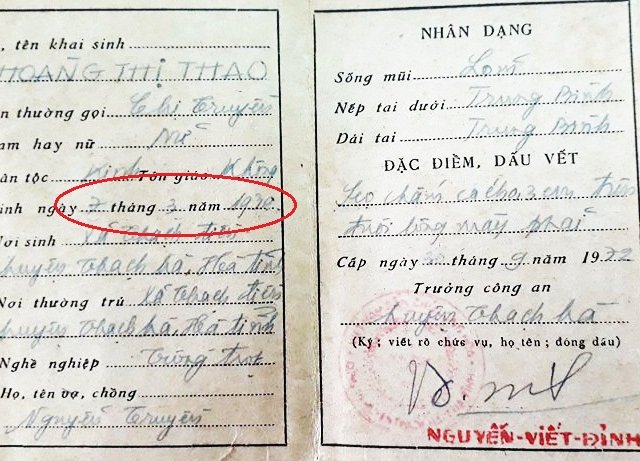 , tên khai sinh
HOÀNG THỊ THAO
n thường gọi Chị Truyền
am hay nữ Nữ
ân tộc Kinh Tôn giáo Không
inh ngày 7 tháng 3 năm
Nơi sinh Xã Thạch Tiến
huyện Thạch Hà, Hà Tĩnh
Nơi thường trú Xã Thạch Tiến
huyện Thạch Hà, Hà Tĩnh
Nghề nghiệp Trồng trọt
Họ, tên vợ, chồng
Nguyễn Truyền
NHÂN DẠNG
Sống mũi Lõm
Nếp tai dưới Trung Bình
Dái tai Trung Bình
ĐẶC ĐIỂM, DẤU VẾT
Sẹo chấm cách 2cm trên
đuôi lông mày phải
Cấp ngày tháng 9 năm 1972
Trưởng công an
huyện Thạch Hà
(Ký; viết rõ chức vụ, họ tên; đóng dấu)
NGUYỄN-VIẾT-ĐÌNH